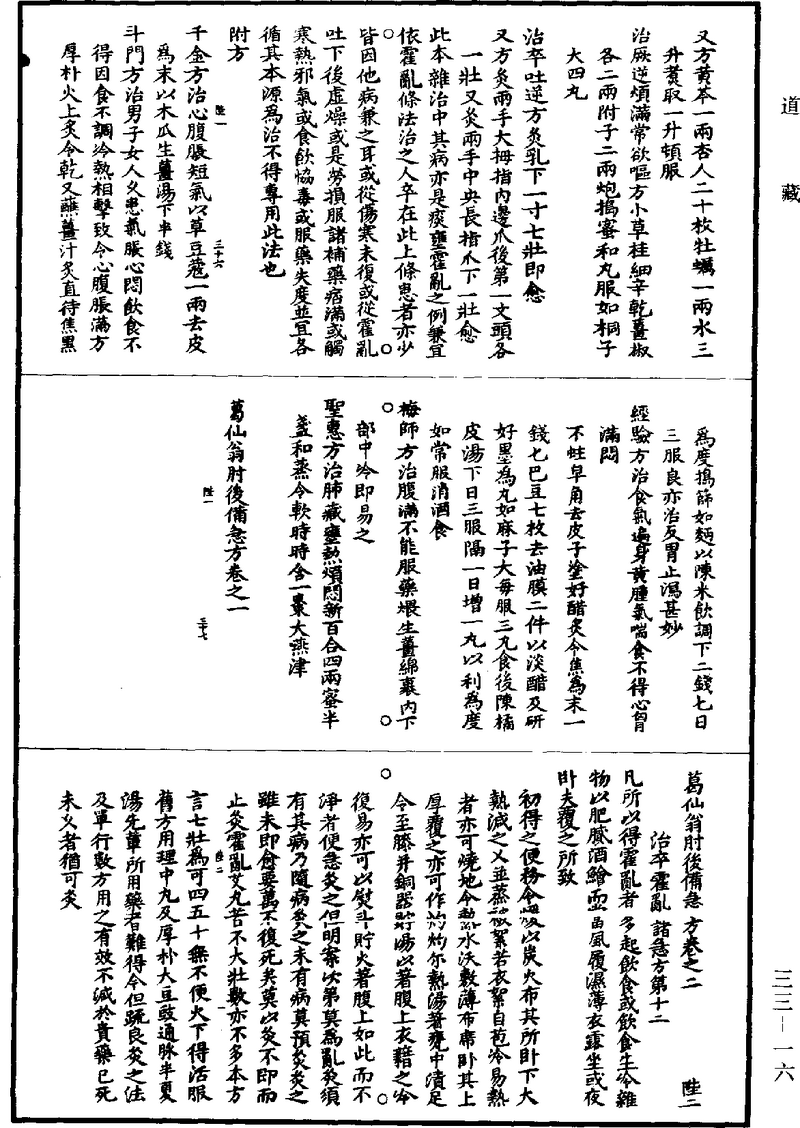 道藏
又方黃芩一兩杏人二十枚牡蠣一兩水三
升煑取一升頓服
治厥逆煩滿常欲嘔方小草桂細辛乾薑椒
各二兩附子二兩炮搗蜜和丸服如桐子
大四丸
治卒吐逆方灸乳下一寸七壯即愈
又方灸兩手大拇指內邊爪後第一文頭各
一壯又灸兩手中央長指爪下一壯愈
此本雜治中其病亦是痰壅霍亂之例兼宜
依霍亂條法治之人卒在此上條患者亦少
皆因他病兼之耳或從傷寒未復或從霍亂
吐下後虛燥或是勞損服諸補藥痞滿或觸
寒熱邪氣或食飲協毒或服藥失度並宜各
循其本源爲治不得專用此法也
附方
陸一
三十六
千金方治心腹脹短氣以草豆蔻一兩去皮
爲末以木瓜生薑湯下半錢
斗門方治男子女人久患氣脹心悶飲食不
得因食不調冷熱相擊致令心腹脹滿方
厚朴火上炙令乾又蘸薑汁炙直待焦黑
爲度搗篩如麵以陳米飲調下二錢七日
三服良亦治反胃止瀉甚妙
經驗方治食氣遍身黃腫氣喘食不得心胷
滿悶
不蛀皁角去皮子塗好醋炙令焦爲末一
錢七巴豆七枚去油膜二件以淡醋及研
好墨爲丸如麻子大每服三丸食後陳橘
皮湯下日三服隔一日增一丸以利爲度
如常服消酒食
梅師方治腹滿不能服藥煨生薑綿裹內下
部中冷即易之
聖惠方治肺藏壅熱煩悶新百合四兩蜜半
盞和蒸令軟時時含一棗大嚥津
葛仙翁肘後備急方卷之一
陸一
三十七
葛仙翁肘後備急方卷之二
陸二
治卒霍亂諸急方第十二
凡所以得霍亂者多起飲食或飲食生冷雜
物以肥膩酒鱠而當風履濕薄衣露坐或夜
卧失覆之所致
初得之便務令暖以炭火布其所卧下大
熱減之又並蒸被絮若衣絮自苞冷易熱
者亦可燒地令熱水沃敷薄布席卧其上
厚覆之亦可作灼灼尔熱湯著甕中漬足
令至膝并銅器貯湯以著腹上衣藉之冷
復易亦可以熨斗貯火著腹上如此而不
淨者便急灸之但明案次第莫爲亂灸須
有其病乃隨病灸之未有病莫預灸灸之
雖未即愈要萬不復死矣莫以灸不即而
止灸霍亂艾丸苦不大壯數亦不多本方
陸二
言七壯爲可四五十無不便火下得活服
舊方用理中丸及厚朴大豆豉通脉半夏
湯先輩所用藥者難得今但疏良灸之法
及單行數方用之有效不減於貴藥已死
未久者猶可灸
三三－一六